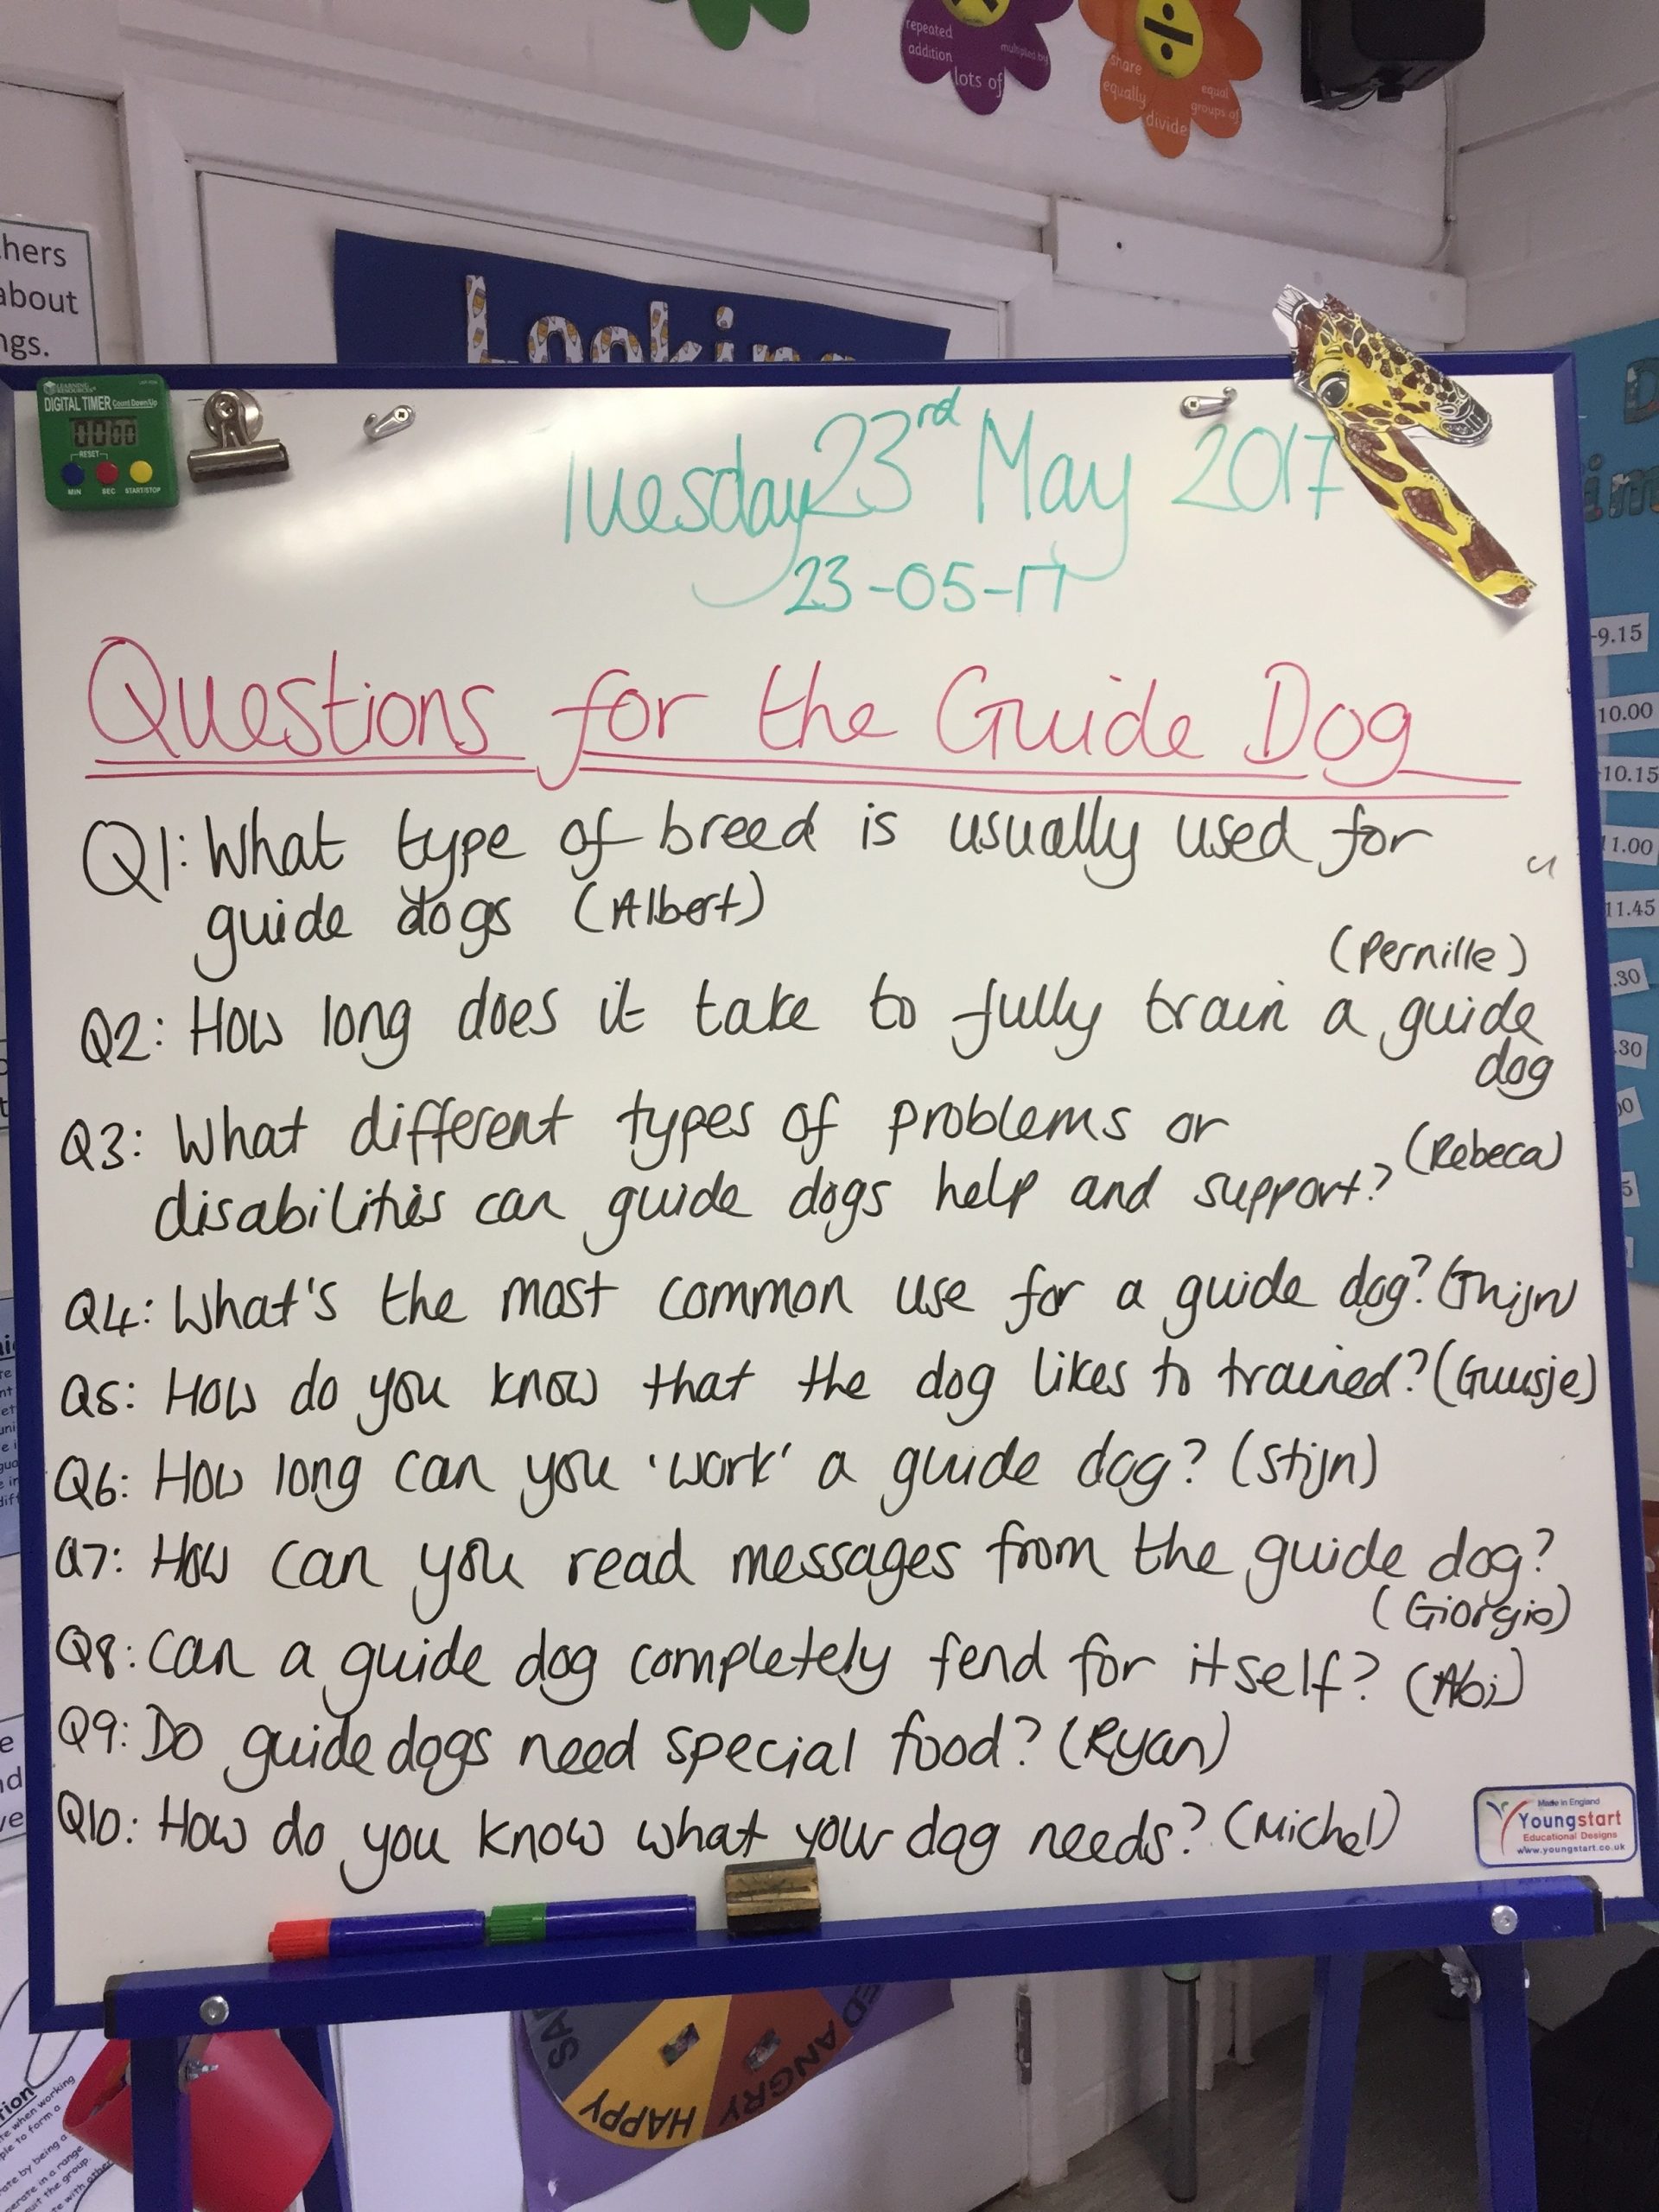 repeated
addition
multiplied by
lots of
share
equally
equal
groups of
divide
÷
hers
about
ngs.
Looking
LEARNING RESOURCES
DIGITAL TIMER Count Down/Up
0000
RESET
MIN SEC START/STOP
Tuesday 23rd May 2017
23-05-17
Questions for the Guide Dog
Q1: What type of breed is usually used for
guide dogs (Albert)
(Pernille)
Q2: How long does it take to fully train a guide
dog
Q3: What different types of problems or
disabilities can guide dogs help and support? (Rebeca)
Q4: What's the most common use for a guide dog? (Thijn)
Q5: How do you know that the dog likes to trained? (Guusje)
Q6: How long can you 'work' a guide dog? (Stijn)
Q7: How can you read messages from the guide dog?
(Giorgio)
Q8: Can a guide dog completely fend for itself? (Abi)
Q9: Do guide dogs need special food? (Ryan)
Q10: How do you know what your dog needs? (Michel)
Made in England
Youngstart
Educational Designs
www.youngstart.co.uk
9.15
10.00
10.15
11.00
11.45
.30
.30
HAPPY
ANGRY